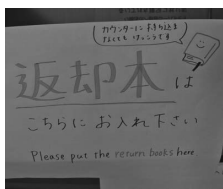 カウンターに お持ち込み
なんても けっこうです
返却本は
こちらに お入れ下さい
Please put the return books here